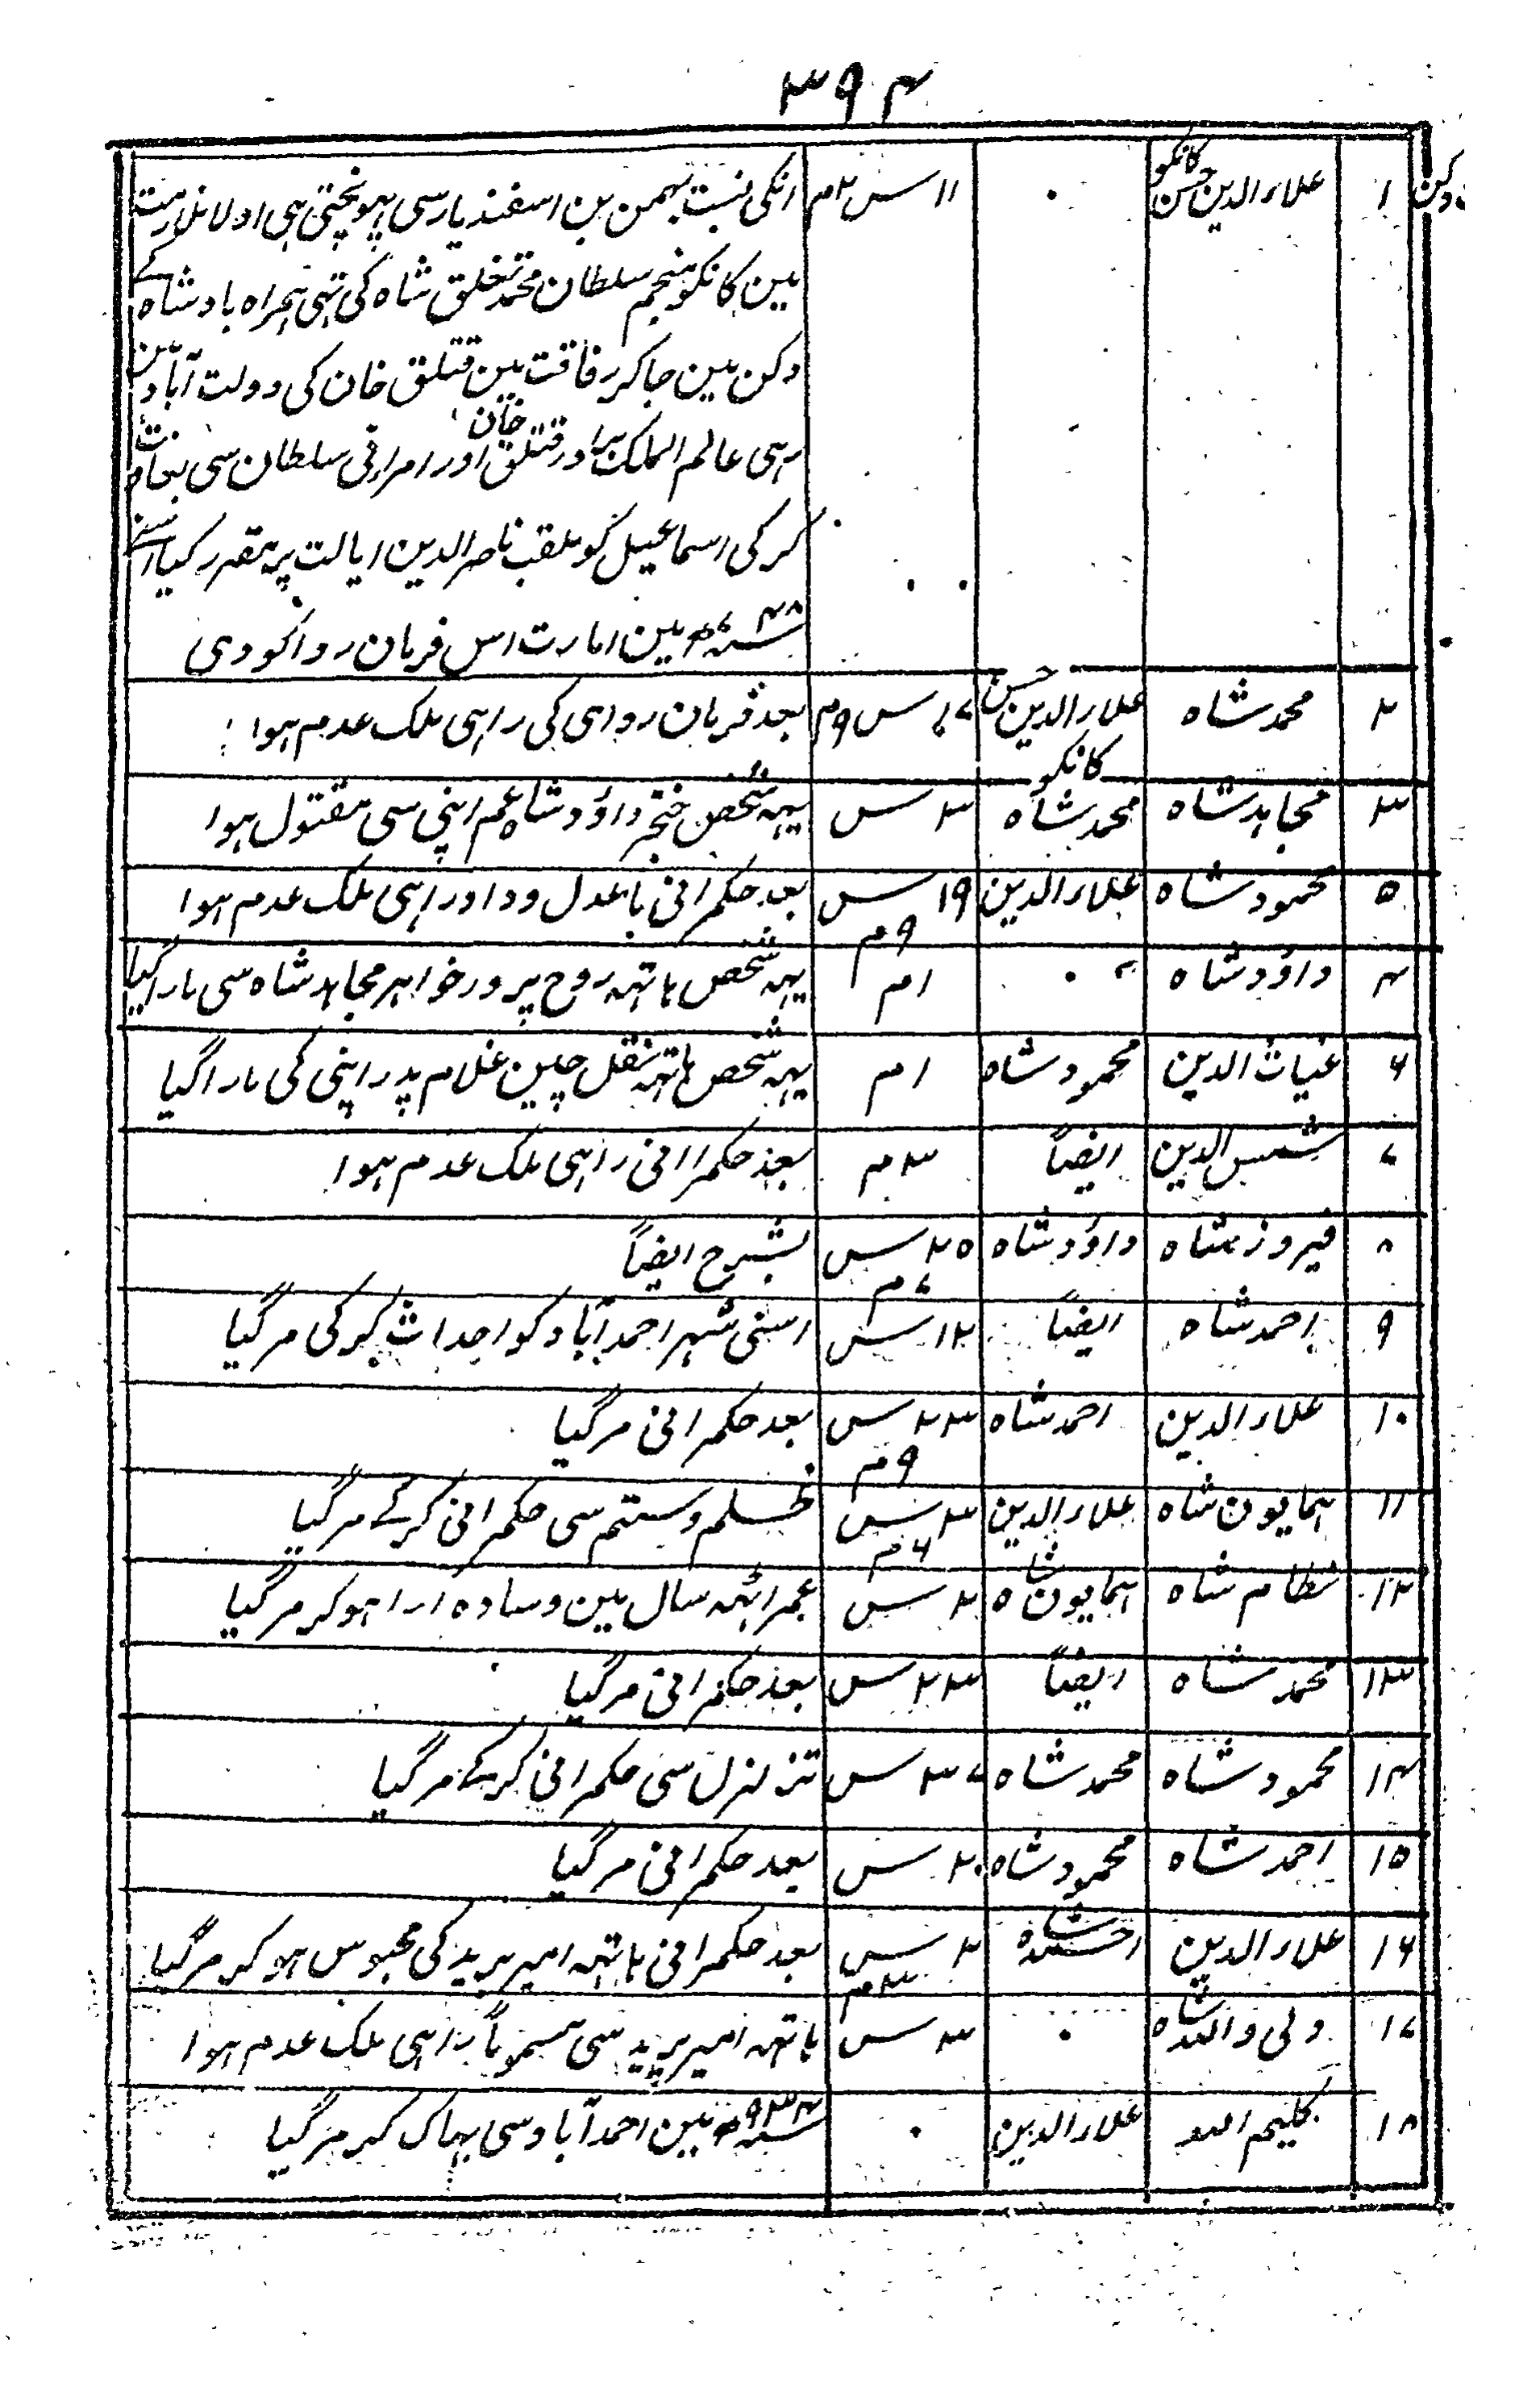 ۳۹۴
۱ علاء الدین حسن کانکو ۰ ۱۱ س ۲م انکی نسبت بہمن بن اسفندیار سی پہونچتی ہی اولا ملازمت
مین کانکو منجم سلطان محمد تغلق شاہ کی تہی ہمراہ بادشاہ کے
دکن مین جاکر رفاقت مین قتلق خان کی دولت آباد مین
رہی عالم الملک برادر قتلق خان اور امرا نی سلطان سی بغاوت
کر کی اسماعیل کو ملقب ناصر الدین ایالت پر مقرر کیا اسنے
سنہ ۷۴۸ مین امارت اس فرمان روا کو دی
۲ محمد شاہ علاء الدین حسن کانکو ۱۷ س ۹م بعد فرمان روا ہی کی راہی ملک عدم ہوا
۳ مجاہد شاہ محمد شاہ ۳ س یہہ شخص خنجر داؤد شاہ عم اپنی سی مقتول ہوا
۵ محمود شاہ علاء الدین ۱۹ س ۹م بعد حکمرانی با عدل و داد راہی ملک عدم ہوا
۴ داؤد شاہ ۰ ۱م یہہ شخص ہاتہہ روح پرور خواہر مجاہد شاہ سی مارا گیا
۶ غیاث الدین محمود شاہ ۱م یہہ شخص ہاتہہ تغل چین غلام پدر اپنی کی مارا گیا
۷ شمس الدین ایضاً ۳م بعد حکمرانی راہی ملک عدم ہوا
۸ فیروز شاہ داؤد شاہ ۲۵ س ۷م بشرح ایضاً
۹ احمد شاہ ایضاً ۱۲ س اسنی شہر احمد آباد کو احداث کر کی مر گیا
۱۰ علاء الدین احمد شاہ ۲۳ س ۹م بعد حکمرانی مر گیا
۱۱ ہمایون شاہ علاء الدین ۳ س ۶م ظلم و ستم سی حکمرانی کر کے مر گیا
۱۲ نظام شاہ ہمایون شاہ ۲ س عمر اٹہہ سال مین وسادہ ارا ہو کر مر گیا
۱۳ محمد شاہ ایضاً ۲۳ س بعد حکمرانی مر گیا
۱۴ محمود شاہ محمد شاہ ۳۷ س تزلزل سی حکمرانی کر کے مر گیا
۱۵ احمد شاہ محمود شاہ ۲۰ س بعد حکمرانی مر گیا
۱۶ علاء الدین احمد شاہ ۲ س ۳م بعد حکمرانی ہاتہہ امیر برید کی محبوس ہو کر مر گیا
۱۷ ولی و اللہ شاہ ۰ ۳ س ہاتہہ امیر برید سی مسموماً راہی ملک عدم ہوا
۱۸ کلیم اللہ علاء الدین ۰ سنہ ۹۳۴ مین احمد آباد سی بہاک کر مر گیا